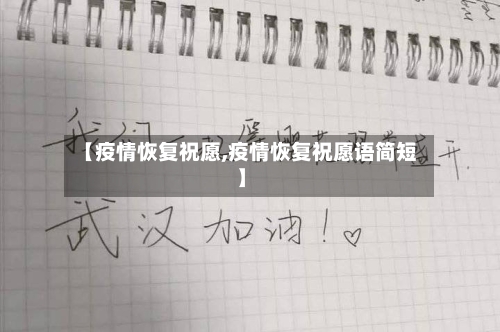 我们一
【疫情恢复祝愿,疫情恢复祝愿语简短
】
武汉加油！♡